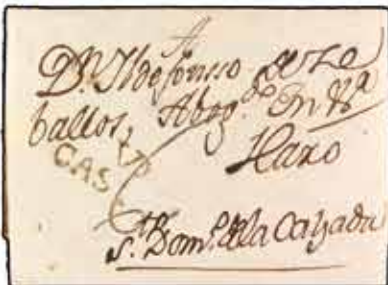 A
Dⁿ. Ildefonsso de Ze
ballos, Abogᵈᵒ. En Vᵃ
CAS
Haro
Sᵗᵒ. Domᵒ. de la Calzada